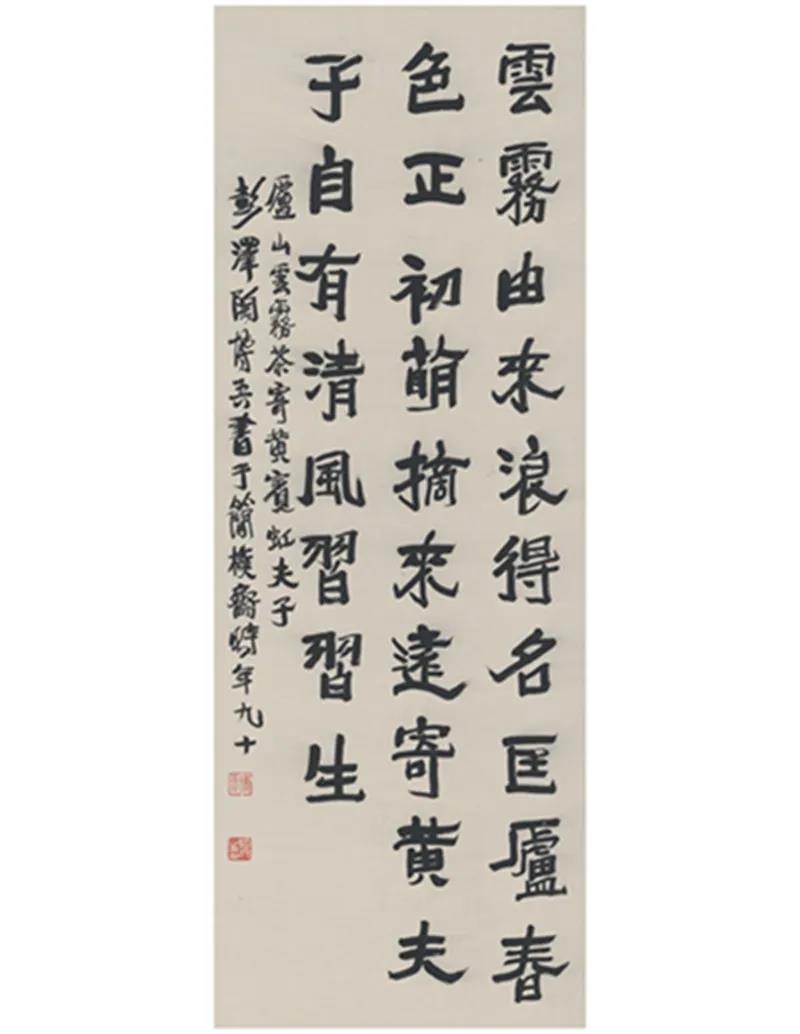 雲霧由來浪得名匡廬春
色正初萌摘來遠寄黃夫
子自有清風習習生
廬山雲霧茶寄黃賓虹夫子
彭澤陶博吾書于簡樸齋時年九十